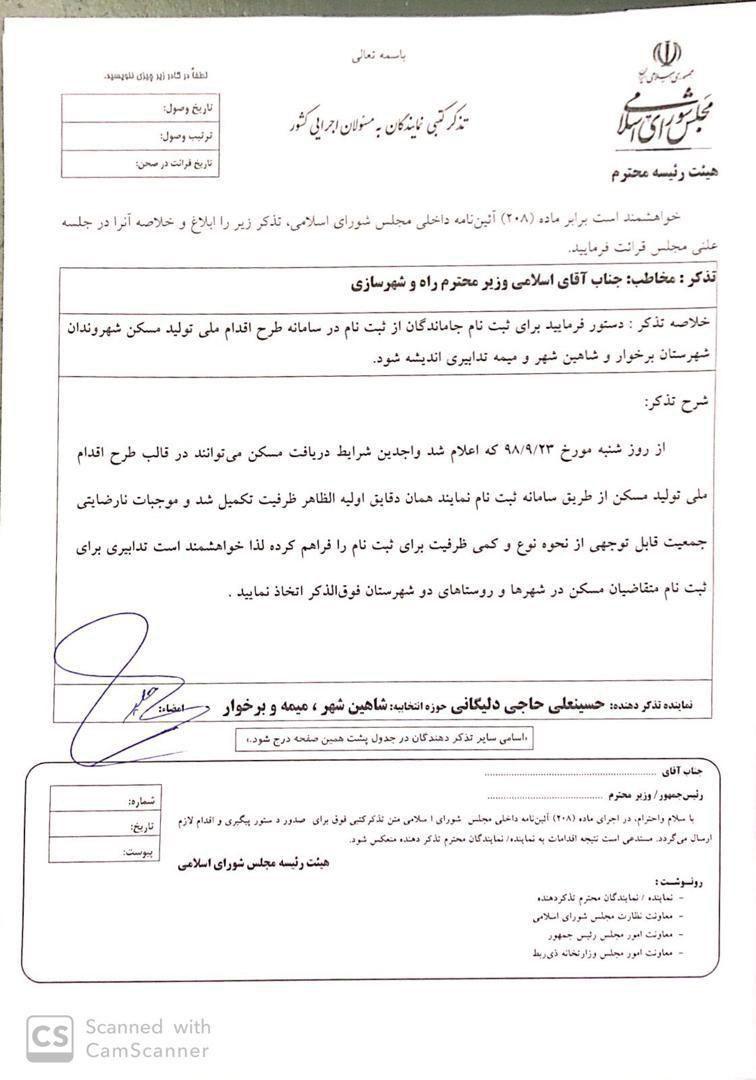 باسمه تعالی
جمهوری اسلامی ایران
مجلس شورای اسلامی
تذکر کتبی نمایندگان به مسئولان اجرایی کشور
لطفاً در کادر زیر چیزی ننویسید.
تاریخ وصول:
ترتیب وصول:
تاریخ قرائت در صحن:
هیئت رئیسه محترم
خواهشمند است برابر ماده (۲۰۸) آئین‌نامه داخلی مجلس شورای اسلامی، تذکر زیر را ابلاغ و خلاصه آنرا در جلسه
علنی مجلس قرائت فرمایید.
تذکر : مخاطب: جناب آقای اسلامی وزیر محترم راه و شهرسازی
خلاصه تذکر : دستور فرمایید برای ثبت نام جاماندگان از ثبت نام در سامانه طرح اقدام ملی تولید مسکن شهروندان
شهرستان برخوار و شاهین شهر و میمه تدابیری اندیشه شود.
شرح تذکر:
از روز شنبه مورخ ۹۸/۹/۲۳ که اعلام شد واجدین شرایط دریافت مسکن می‌توانند در قالب طرح اقدام
ملی تولید مسکن از طریق سامانه ثبت نام نمایند همان دقایق اولیه الظاهر ظرفیت تکمیل شد و موجبات نارضایتی
جمعیت قابل توجهی از نحوه نوع و کمی ظرفیت برای ثبت نام را فراهم کرده لذا خواهشمند است تدابیری برای
ثبت نام متقاضیان مسکن در شهرها و روستاهای دو شهرستان فوق‌الذکر اتخاذ نمایید .
نماینده تذکر دهنده: حسینعلی حاجی دلیگانی حوزه انتخابیه: شاهین شهر ، میمه و برخوار امضاء:
«اسامی سایر تذکر دهندگان در جدول پشت همین صفحه درج شود.»
جناب آقای ................................................
رئیس‌جمهور/ وزیر محترم ................................
شماره:
تاریخ:
پیوست:
با سلام واحترام، در اجرای ماده (۲۰۸) آئین‌نامه داخلی مجلس شورای اسلامی متن تذکرکتبی فوق برای صدور دستور پیگیری و اقدام لازم
ارسال می‌گردد. مستدعی است نتیجه اقدامات به نماینده/ نمایندگان محترم تذکر دهنده منعکس شود.
هیئت رئیسه مجلس شورای اسلامی
رونوشت:
- نماینده / نمایندگان محترم تذکردهنده
- معاونت نظارت مجلس شورای اسلامی
- معاونت امور مجلس رئیس جمهور
- معاونت امور مجلس وزارتخانه ذی‌ربط
CS Scanned with
CamScanner